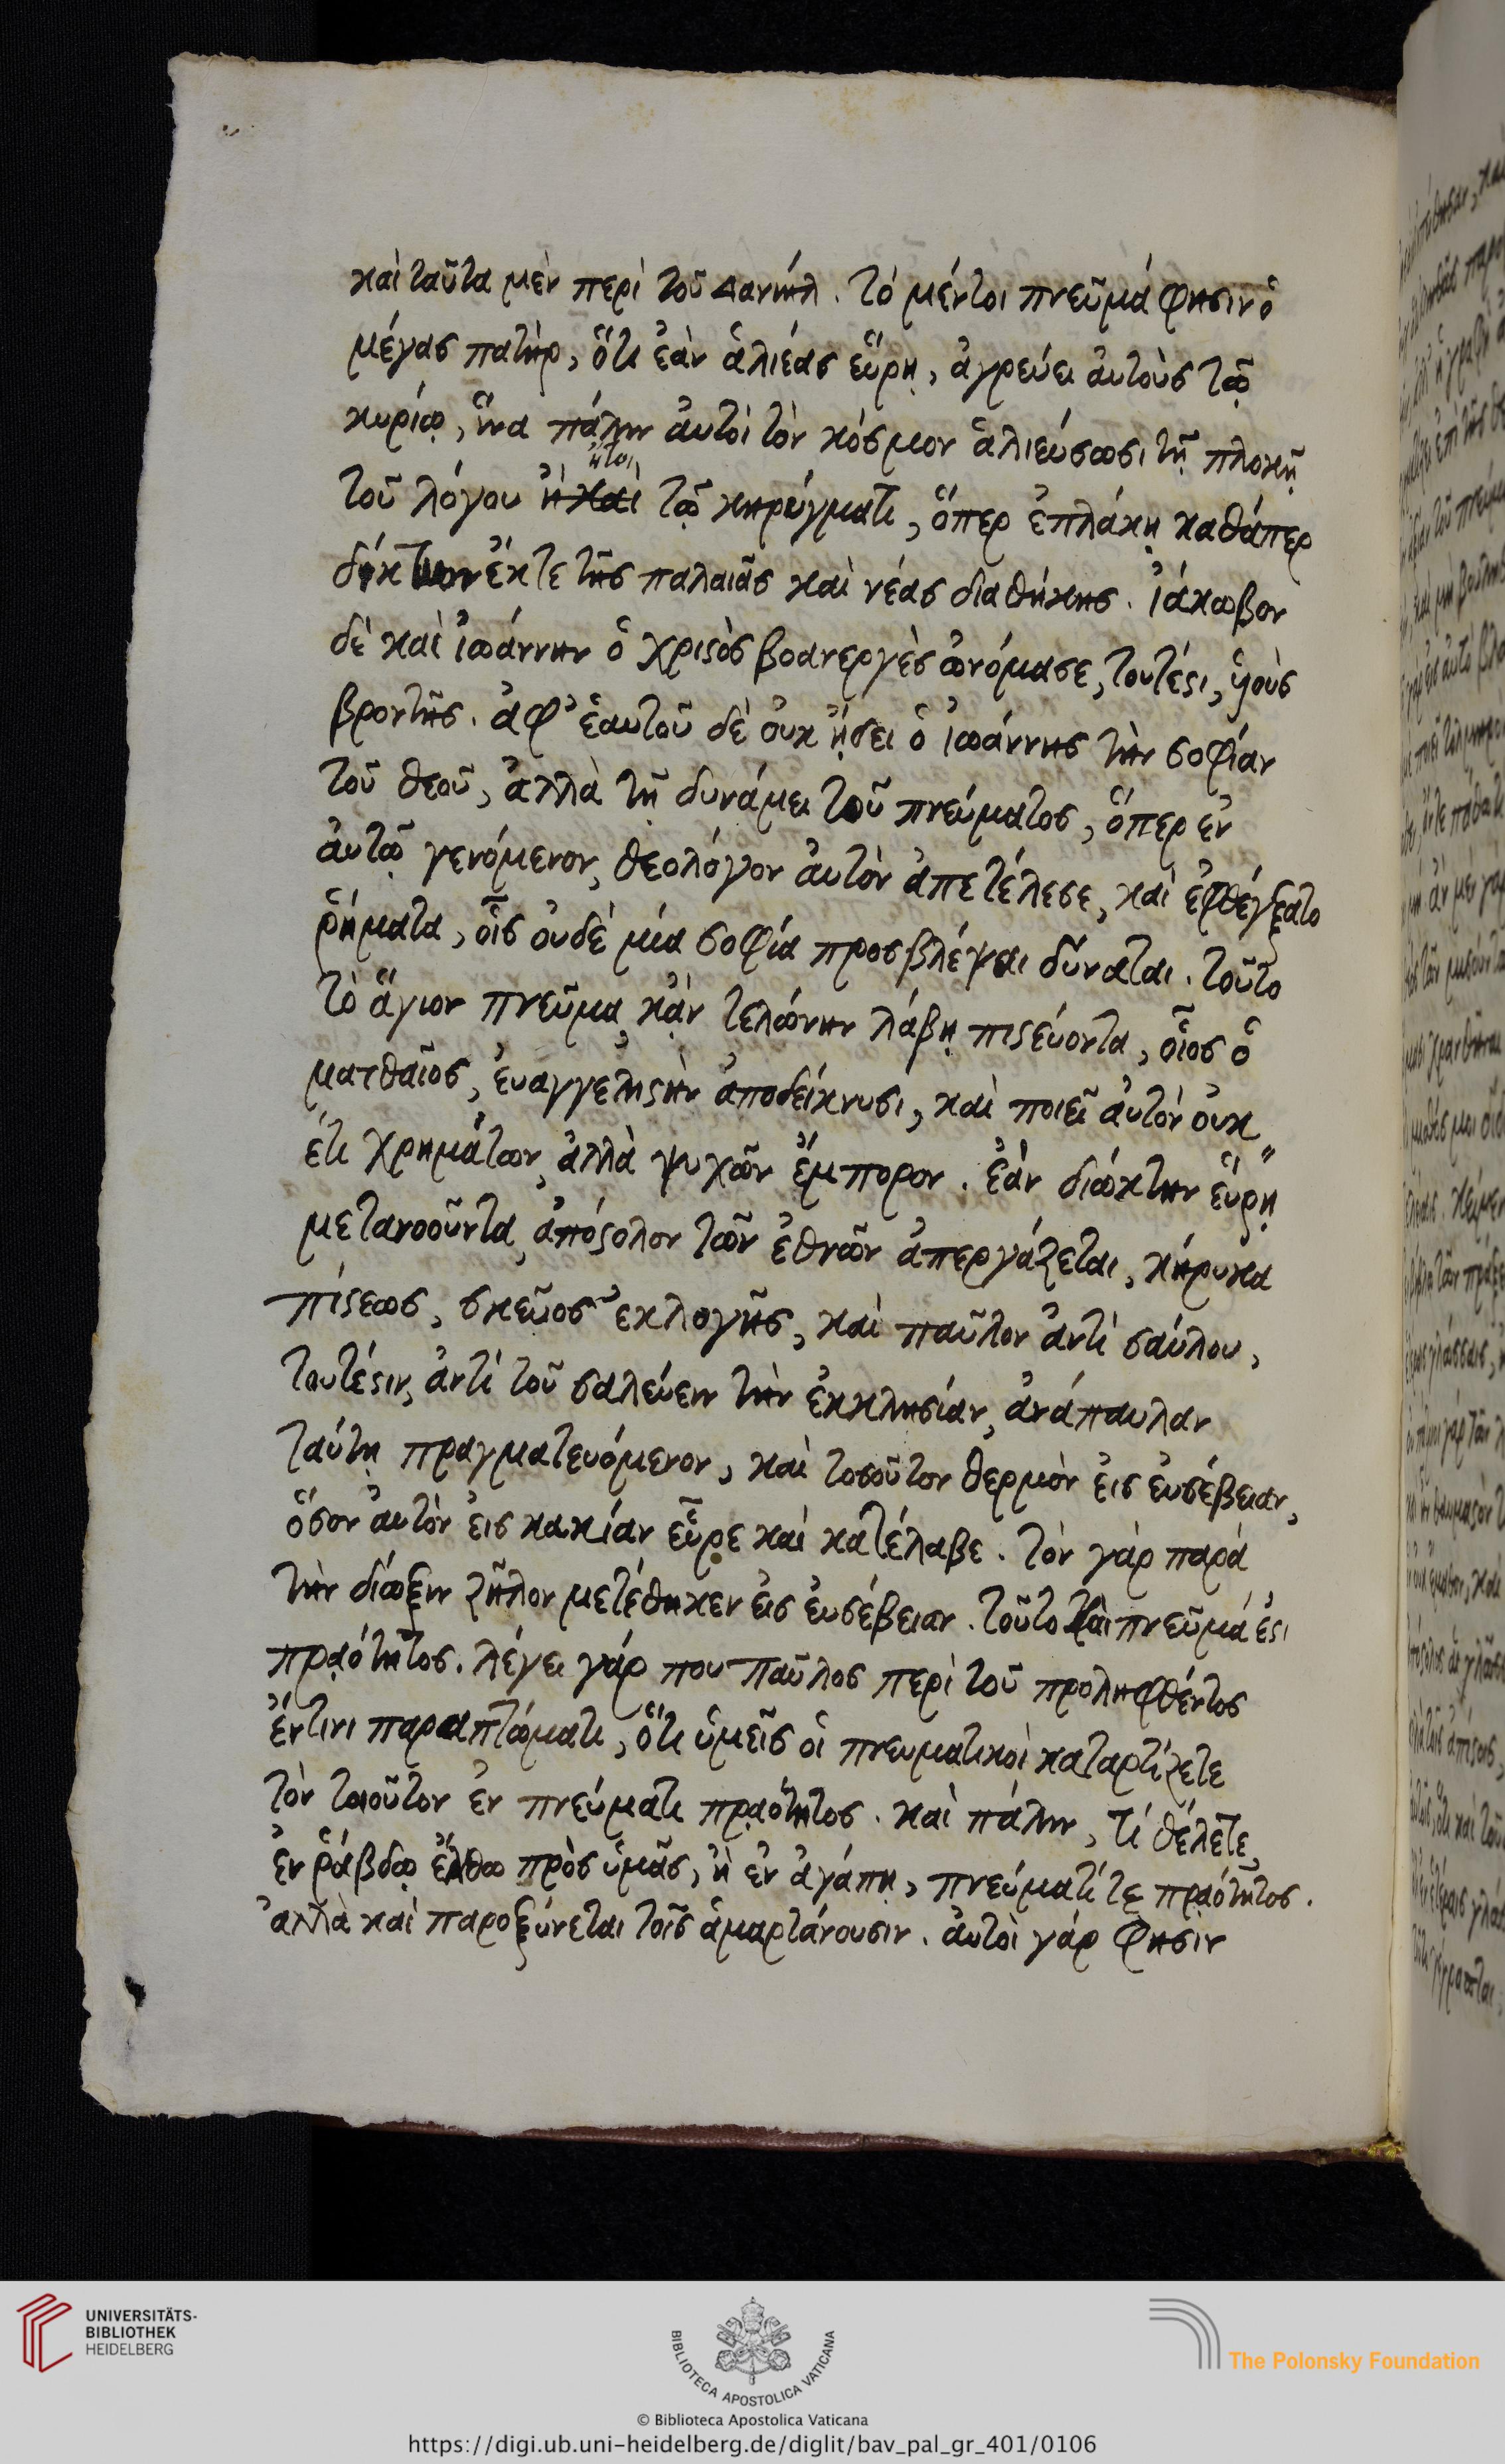 καὶ ταῦτα μὲν περὶ τοῦ Δανιήλ. τὸ μέντοι πνεῦμά φησιν ὁ
μέγας πατὴρ, ὅτι ἐὰν ἁλιέας εὕρῃ, ἀγρεύει ἀυτοὺς τῷ
κυρίῳ, ἵνα πάλιν ἀυτοὶ τὸν κόσμον ἁλιεύσωσι τῇ πλοκῇ
ἤτοι
τοῦ λόγου ἢ καὶ τῷ κηρύγματι, ὅπερ ἐπλάκη καθάπερ
δίκτυον ἔκτε τῆς παλαιᾶς καὶ νέας διαθήκης. ἰάκωβον
δὲ καὶ ἰωάννην ὁ χριϛὸς βοανεργὲς ὠνόμασε, τουτέϛι, ὑιοὺς
βροντῆς. ἀφ᾽ ἑαυτοῦ δὲ ὀυκ ᾔδει ὁ ἰωάννης τὴν σοφίαν
τοῦ θεοῦ, ἀλλὰ τῇ δυνάμει τοῦ πνεύματος, ὅπερ ἐν
ἀυτῷ γενόμενον, θεολόγον ἀυτὸν ἀπετέλεσε, καὶ ἐφθέγξατο
ῥήματα, οἷς οὐδὲ μία σοφία προσβλέψαι δύναται. τοῦτο
τὸ ἅγιον πνεῦμα, κἂν τελώνην λάβῃ πιϛεύοντα, οἷος ὁ
ματθαῖος, ἐυαγγελιϛὴν ἀποδείκνυσι, καὶ ποιεῖ ἀυτὸν ὀυκ
έτι χρημάτων, ἀλλὰ ψυχῶν ἔμπορον. ἐὰν διώκτην εὕρῃ
μετανοοῦντα, ἀπόϛολον τῶν ἐθνῶν ἀπεργάζεται, κήρυκα
πίϛεως, σκεῦος ἐκλογῆς, καὶ παῦλον ἀντὶ σαύλου,
τουτέϛιν, ἀντὶ τοῦ σαλεύειν τὴν ἐκκλησίαν, ἀνάπαυλαν
ταύτῃ πραγματευόμενον, καὶ τοσοῦτον θερμὸν ἐις ἐυσέβειαν,
ὅσον ἀυτὸν ἐις κακίαν εὗρε καὶ κατέλαβε. τὸν γὰρ παρὰ
τὴν δίωξιν ζῆλον μετέθηκεν ἐις ἐυσέβειαν. τοῦτο καὶ πνεῦμά ἐϛι
πραότητος. λέγει γάρ που παῦλος περὶ τοῦ προληφθέντος
ἔντινι παραπτώματι, ὅτι ὑμεῖς οἱ πνευματικοὶ καταρτίζετε
τὸν τοιοῦτον ἐν πνεύματι πραότητος. καὶ πάλιν, τί θέλετε,
ἐν ῥάβδῳ ἔλθω πρὸς ὑμᾶς, ἢ ἐν ἀγάπῃ, πνεύματί τε πραότητος.
ἀλλὰ καὶ παροξύνεται τοῖς ἁμαρτάνουσιν. ἀυτοὶ γάρ φησὶν
UNIVERSITÄTS-
BIBLIOTHEK
HEIDELBERG
BIBLIOTECA APOSTOLICA VATICANA
The Polonsky Foundation
© Biblioteca Apostolica Vaticana
https://digi.ub.uni-heidelberg.de/diglit/bav_pal_gr_401/0106